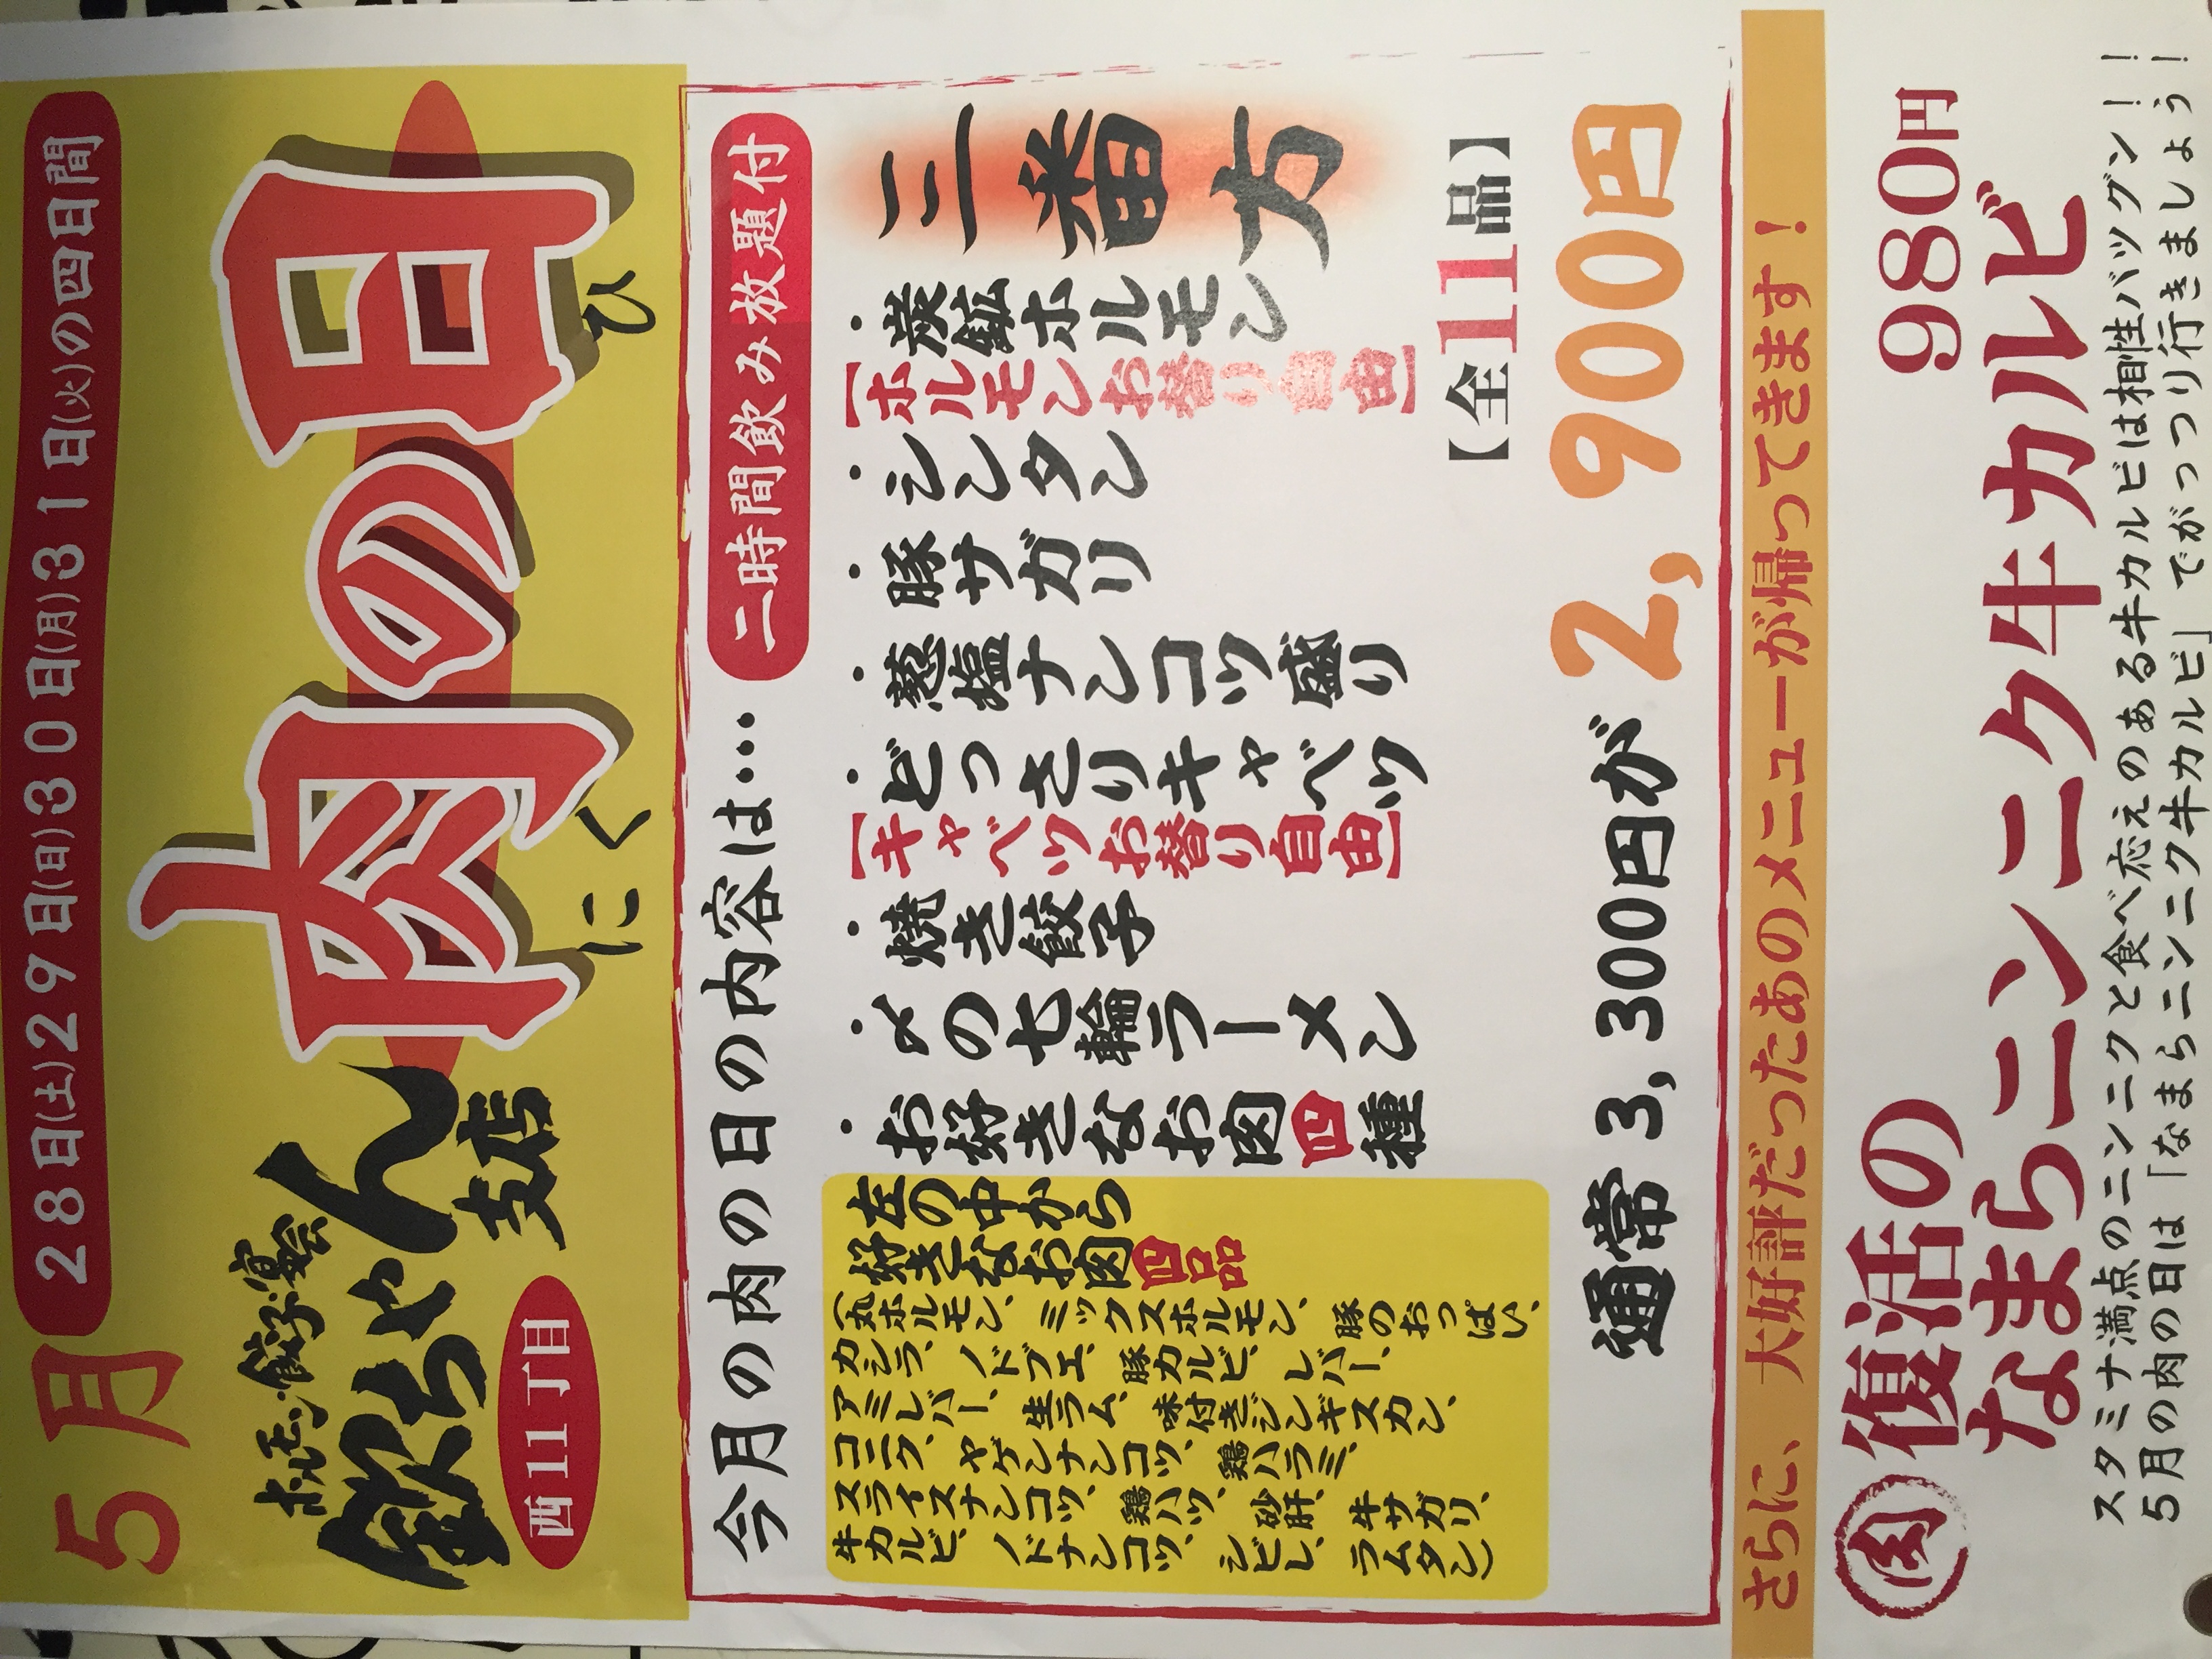 5月
28日(土)29日(日)30日(月)31日(火)の四日間
ホルモン・餃子・宴会
飲ちゃん
支店
西11丁目
肉の日
にく
ひ
今月の肉の日の内容は…
二時間飲み放題付
三番方
・炭鉱ホルモン
【ホルモンお替り自由】
・シンタン
・豚サガリ
・葱塩ナンコツ盛り
・どっさりキャベツ
【キャベツお替り自由】
・焼き餃子
・〆の七輪ラーメン
・お好きなお肉四種
左の中から
好きなお肉四品
(丸ホルモン、ミックスホルモン、豚のおっぱい、
カシラ、ノドブエ、豚カルビ、レバー、
アミレバー、生ラム、味付きジンギスカン、
コニク、ヤゲンナンコツ、鶏ハラミ、
スライスナンコツ、鶏ハツ、砂肝、牛サガリ、
牛カルビ、ノドナンコツ、シビレ、ラムタン)
【全11品】
通常3,300円が 2,900円
さらに、大好評だったあのメニューが帰ってきます!
肉
復活の
なまらニンニク牛カルビ
980円
スタミナ満点のニンニクと食べ応えのある牛カルビは相性バツグン!!
5月の肉の日は「なまらニンニク牛カルビ」でがっつり行きましょう!